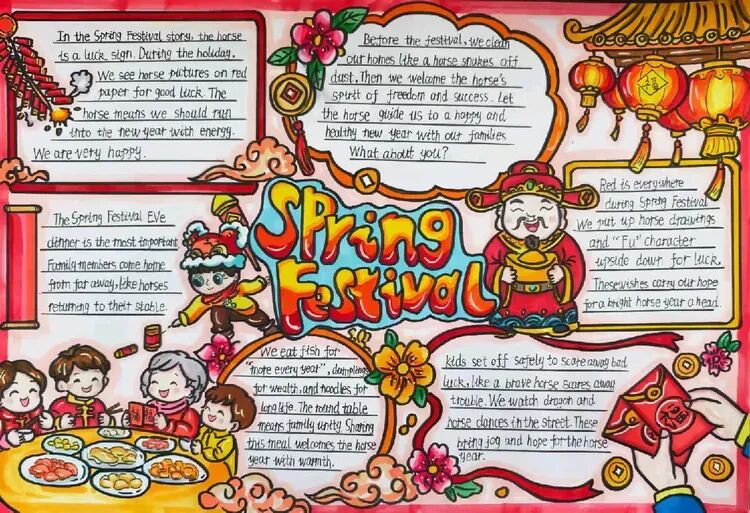 In the Spring Festival story, the horse
is a luck sign. During the holiday.
We see horse pictures on red
paper for good luck. The
horse means we should run
into the new year with energy.
We are very happy.
Before the festival, we clean
our homes like a horse snakes off
dust. Then we welcome the horse's
spirit of freedom and success. Let
the horse guide us to a happy and
healthy new year with our families
What about you?
福
The Spring Festival Eve
dinner is the most important
Family members come home
from far away, like horses
returning to their stable.
Spring
Festival
Red is everywhere
during Spring Festival
We put up horse drawings
and "Fu" character
upside down for luck.
These wishes carry our hope
for a bright horse year ahead.
We eat fish for
"more every year", dumplings
for wealth, and noodles for
long life. The round table
means family unity. Sharing
this meal welcomes the horse
year with warmth.
kids set off safely to scare away bad
luck, like a brave horse scares away
trouble. We watch dragon and
horse dances in the street. These
bring jog and hope for the horse
year.
福
福